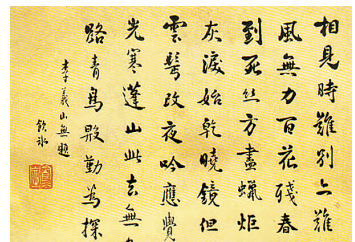 相見時難別亦難
風無力百花殘春
到死丝方盡蠟炬
灰淚始乾曉鏡但
雲鬢改夜吟應覺
光寒蓬山此去無
路青鳥殷勤為探
李義山無題
飲冰